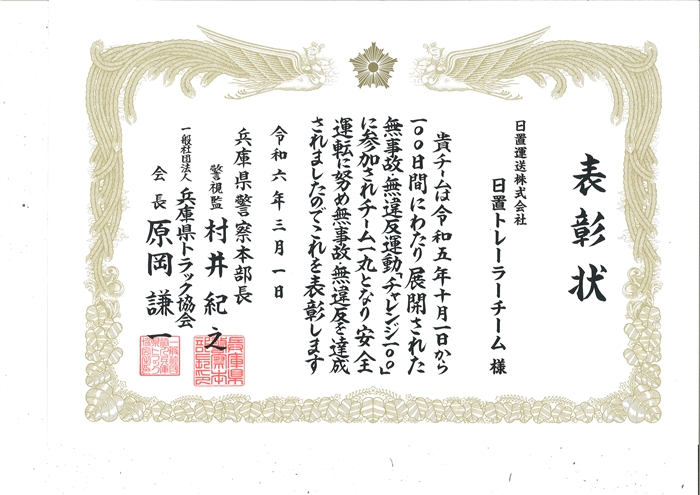 表彰状
日置運送株式会社
日置トレーラーチーム 様
貴チームは令和五年十月一日から
一〇〇日間にわたり展開された
無事故・無違反運動「チャレンジ一〇〇」
に参加されチーム一丸となり安全
運転に努め無事故・無違反を達成
されましたのでこれを表彰します
令和六年三月一日
兵庫県警察本部長
警視監 村井紀之
一般社団法人 兵庫県トラック協会
会長 原岡謙一
兵庫県警察本部長印